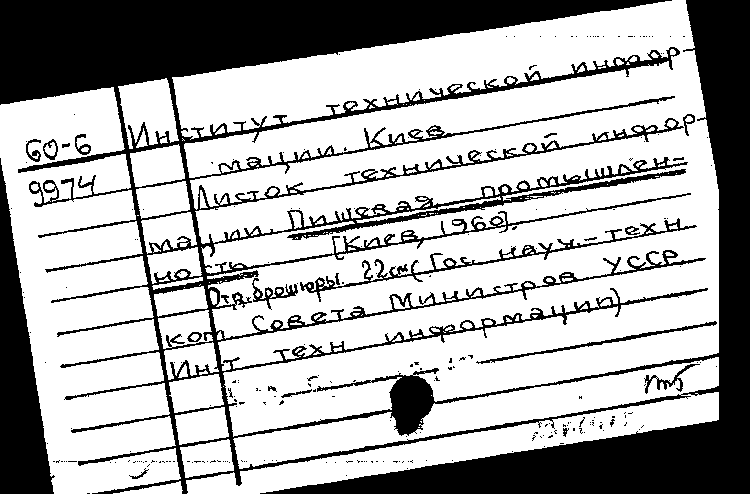 60-6 Институт технической инфор-
9974 мации. Киев
Листок технической инфор-
мации. Пищевая промышлен-
ность [Киев, 1960].
Отд. брошюры. 22см (Гос. науч.-техн
ком Совета Министров УССР
Ин-т техн информации)